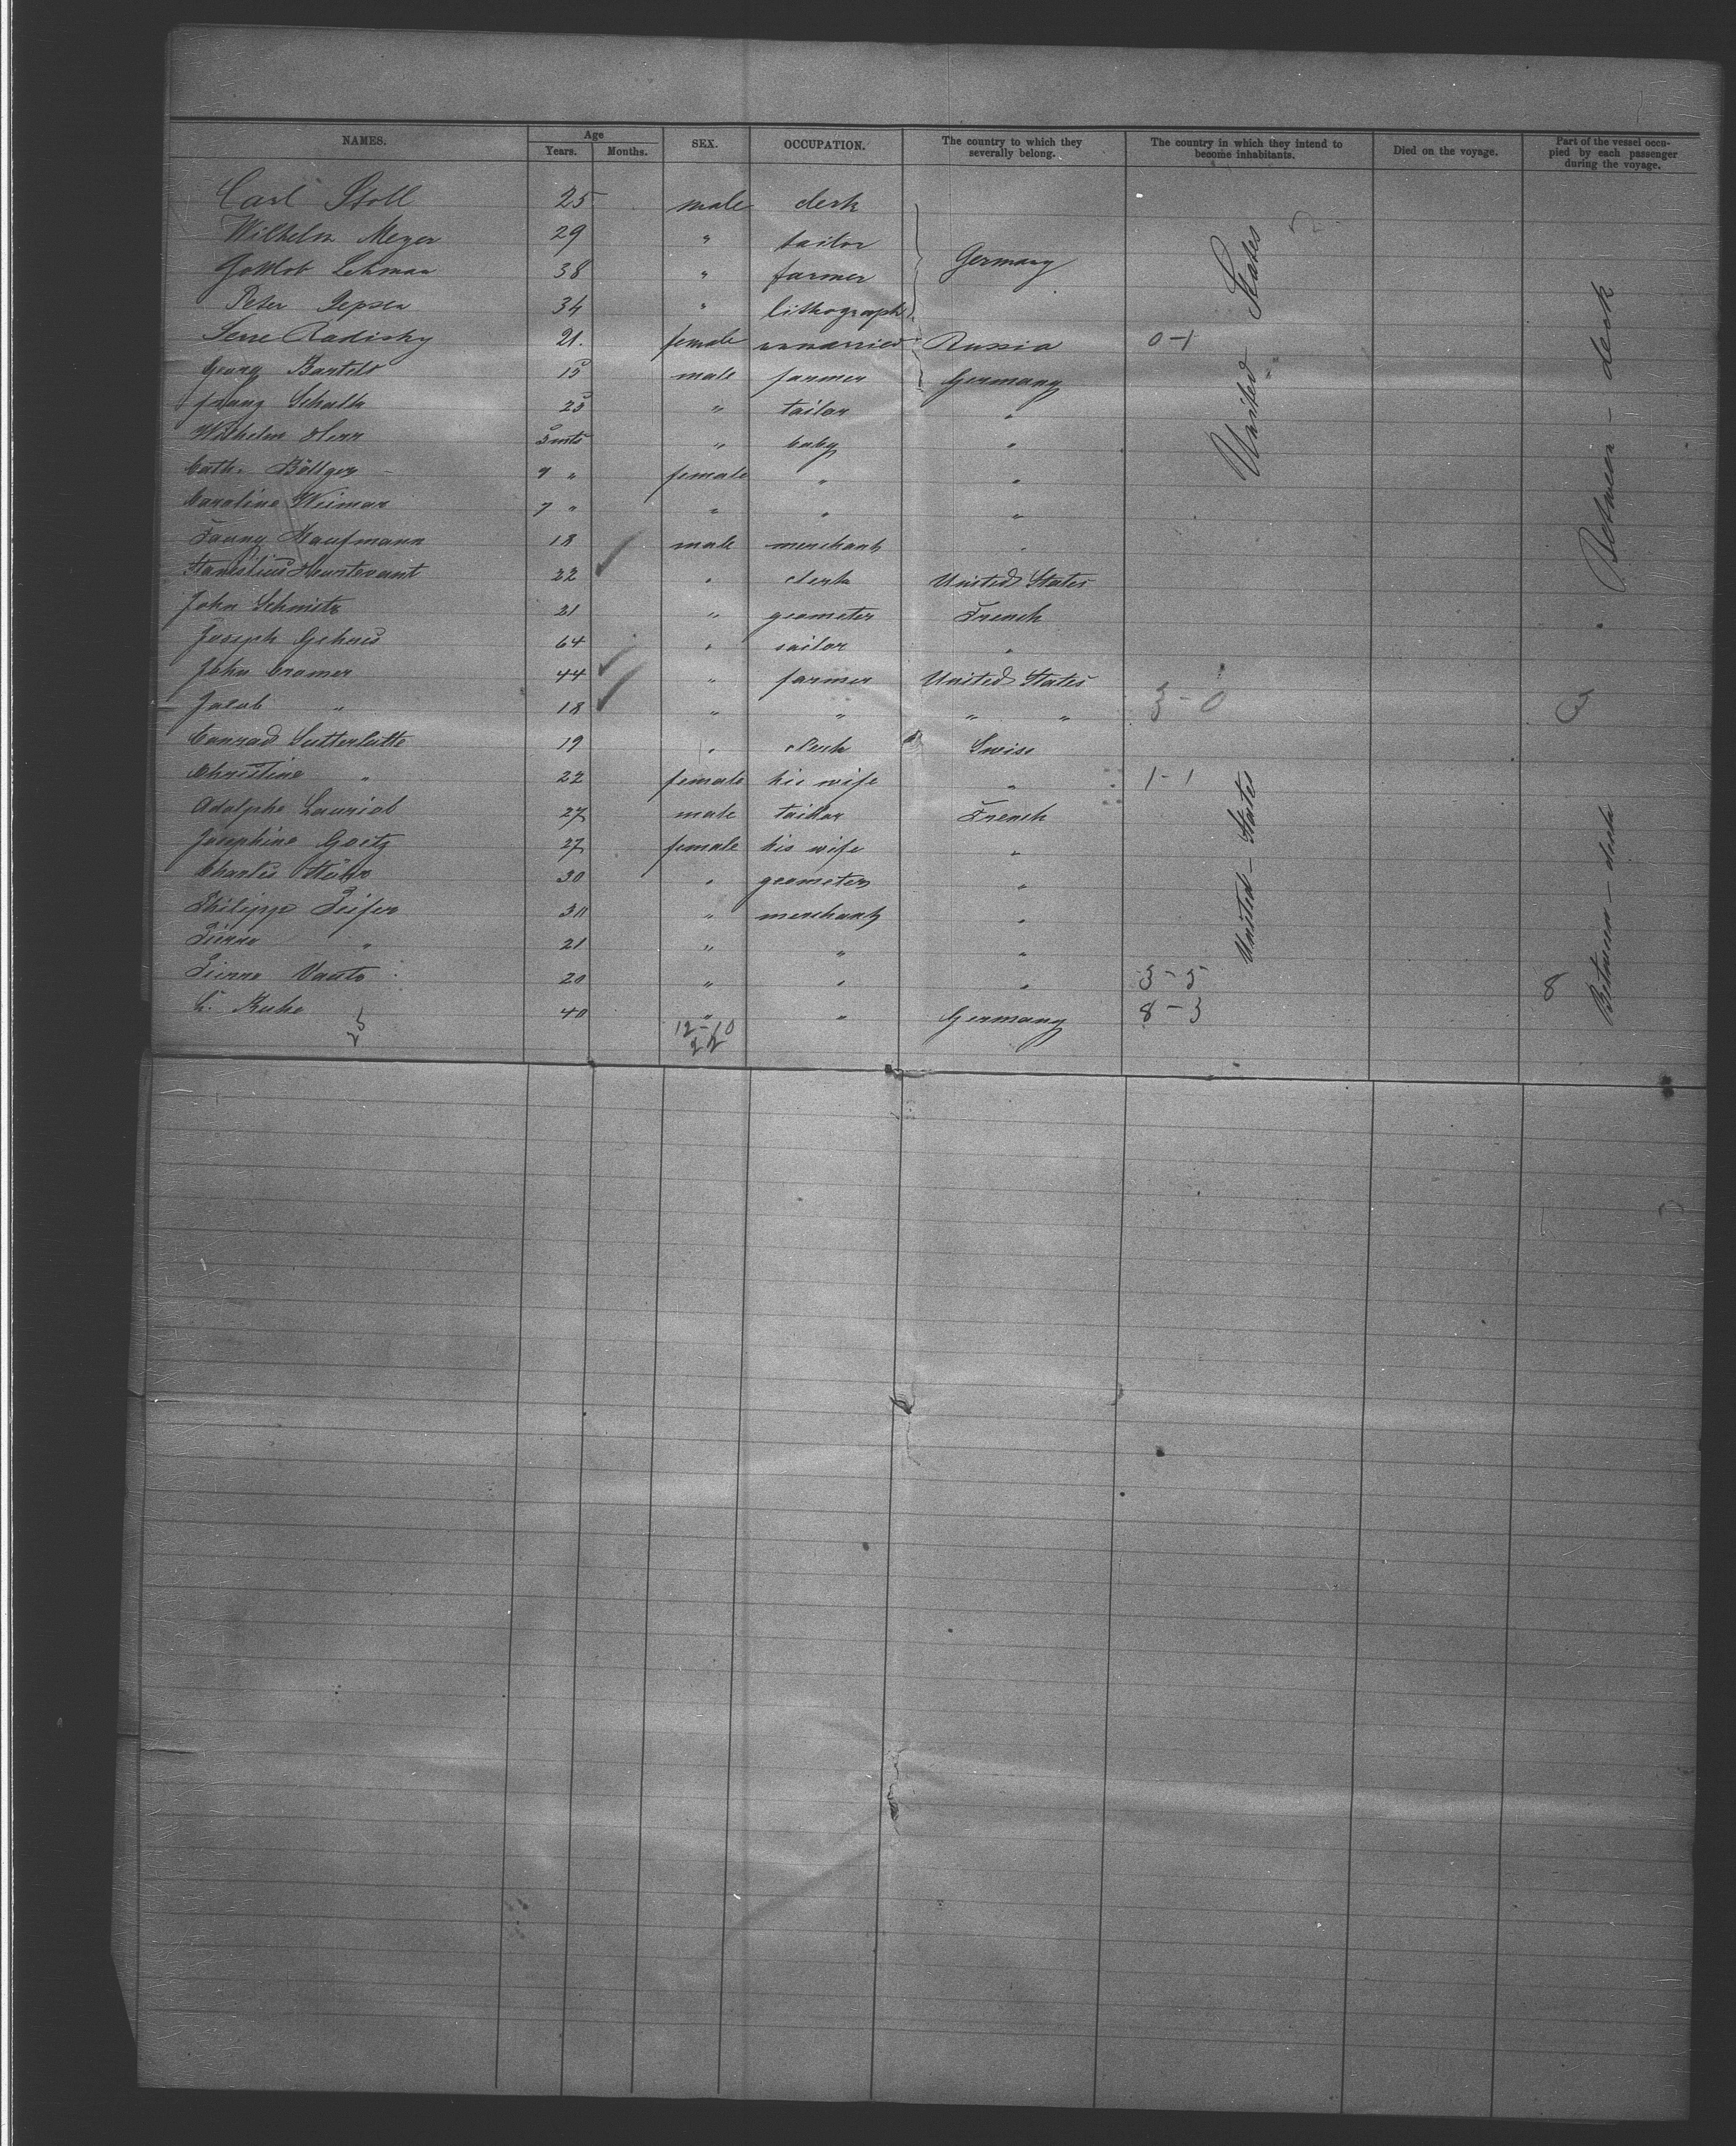 NAMES. Age Years. Months. SEX. OCCUPATION. The country to which they severally belong. The country in which they intend to become inhabitants. Died on the voyage. Part of the vessel occupied by each passenger during the voyage.
Carl Stoll 25 male clerk
Wilhelm Meyer 29 " tailor
Gottlob Lehman 38 " farmer Germany
Peter Jepsen 34 " lithograph
Radisky 21. female unmarried Russia 0-1
Georg Bartels 15 male farmer Germany
Franz Schulh 25 " tailor "
Wilhelm Herr " baby "
Cath. Böttger 9 " female " "
Caroline Weimar 7 " " " "
Kaufmann 18 male merchant "
22 " clerk United States
John Schmitz 21 " geometer French
Joseph 64 " sailor "
John Cramer 44 " farmer United States
Jacob " 18 " " " " 3-0
Conrad Sutterlutte 19 " clerk Swiss
Christine " 22 female his wife " 1-1
Adolphe Lauriol 27 male tailor French
Josephine Goetz 27 female his wife "
Charles 30 " geometer "
Philippe 30 " merchant "
" 21 " " "
20 " " " 3-5
C. Ruhe 40 " " Germany 8-3
25 12-10
22
United States
United - States
Between - deck
3
Between - deck
8